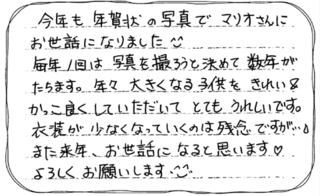 今年も年賀状の写真でマリオさんに
お世話になりました
毎年1回は写真を撮ろうと決めて数年が
たちます。年々大きくなる子供をきれい&
かっこ良くしていただいてとてもうれしいです。
衣装が少なくなっていくのは残念ですが…。
また来年、お世話になると思います♡
よろしくお願いします